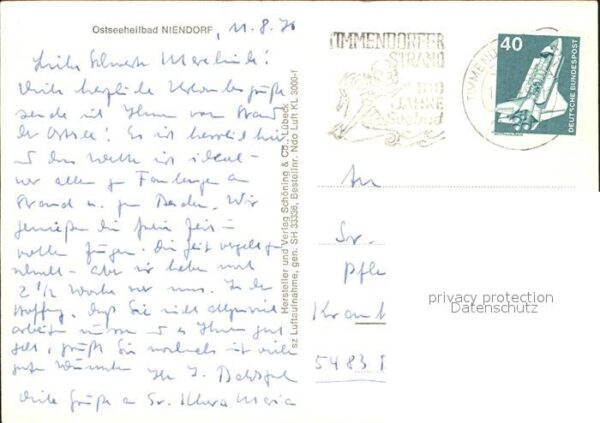 Ostseeheilbad NIENDORF, 11.8.76
Liebe Schwester
viele herzliche Urlaubsgrüße
sende ich Ihnen vom Strand
der Ostsee! Es ist herrlich hier
und das Wetter ist ideal –
vor allem zu
Strand u. zum Baden. Wir
genießen die freie Zeit –
Die Zeit vergeht so
schnell – aber wir haben noch
2 1/2 Wochen vor uns. In der
Hoffnung, daß Sie nicht allzuviel
arbeiten müssen und es Ihnen gut
geht, grüßt Sie nochmals mit vielen
guten Wünschen Ihr
Viele Grüße an Sr. Klara Maria
Hersteller und Verlag Schöning & Co., Lübeck
sz Luftaufnahme, gen. SH 33336, Bestellnr. Ndo Luft KL 3000-f
TIMMENDORFER
STRAND
100
JAHRE
Seebad
TIMMEN
40
DEUTSCHE BUNDESPOST
An
Sr.
Pfle
Krank
5483
privacy protection
Datenschutz